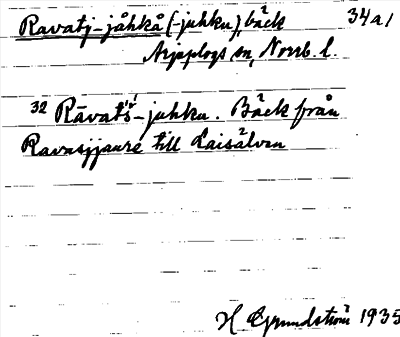 Ravatj-jåhkå (-juhku), bäck 34a1
Arjeplogs sn, Norrb. l.
32 Rāvat's'-juhku. Bäck från
Ravasjjaure till Laisälven
H Grundström 1935